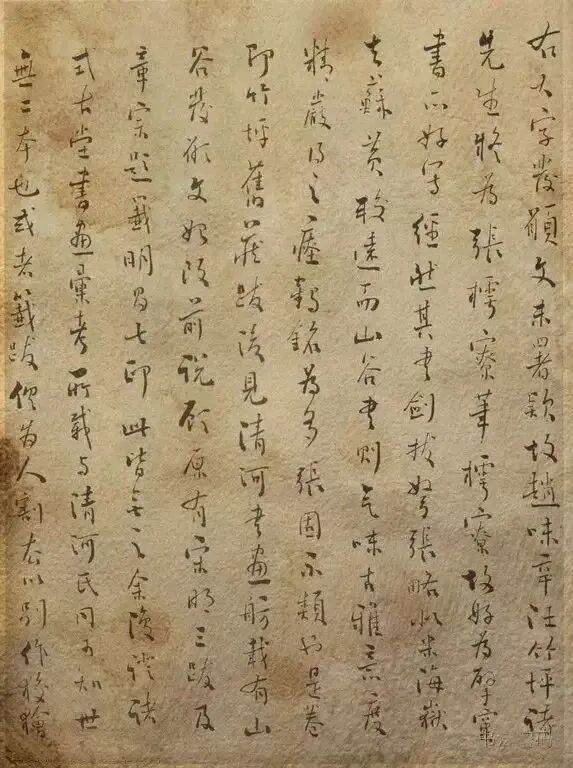 右大字發願文未署款故趙味辛汪竹坪諸
先生疑為張樗寮筆樗寮故好為擘窠
書亦好寫經然其書劍拔弩張略似米海嶽
去蘇黃殊遠而山谷書則气味古雅意度
精嚴得之瘞鶴銘為多張固不類也是卷
即竹坪舊藏跋後見清河書畫舫載有山
谷發願文始改前說顧原有宋明三跋及
章宗題籤明昌七印此皆無之余復證諸
式古堂書畫彙考所載与清河氏同可知世
無二本也或者籤跋俱为人割去以別作狡獪